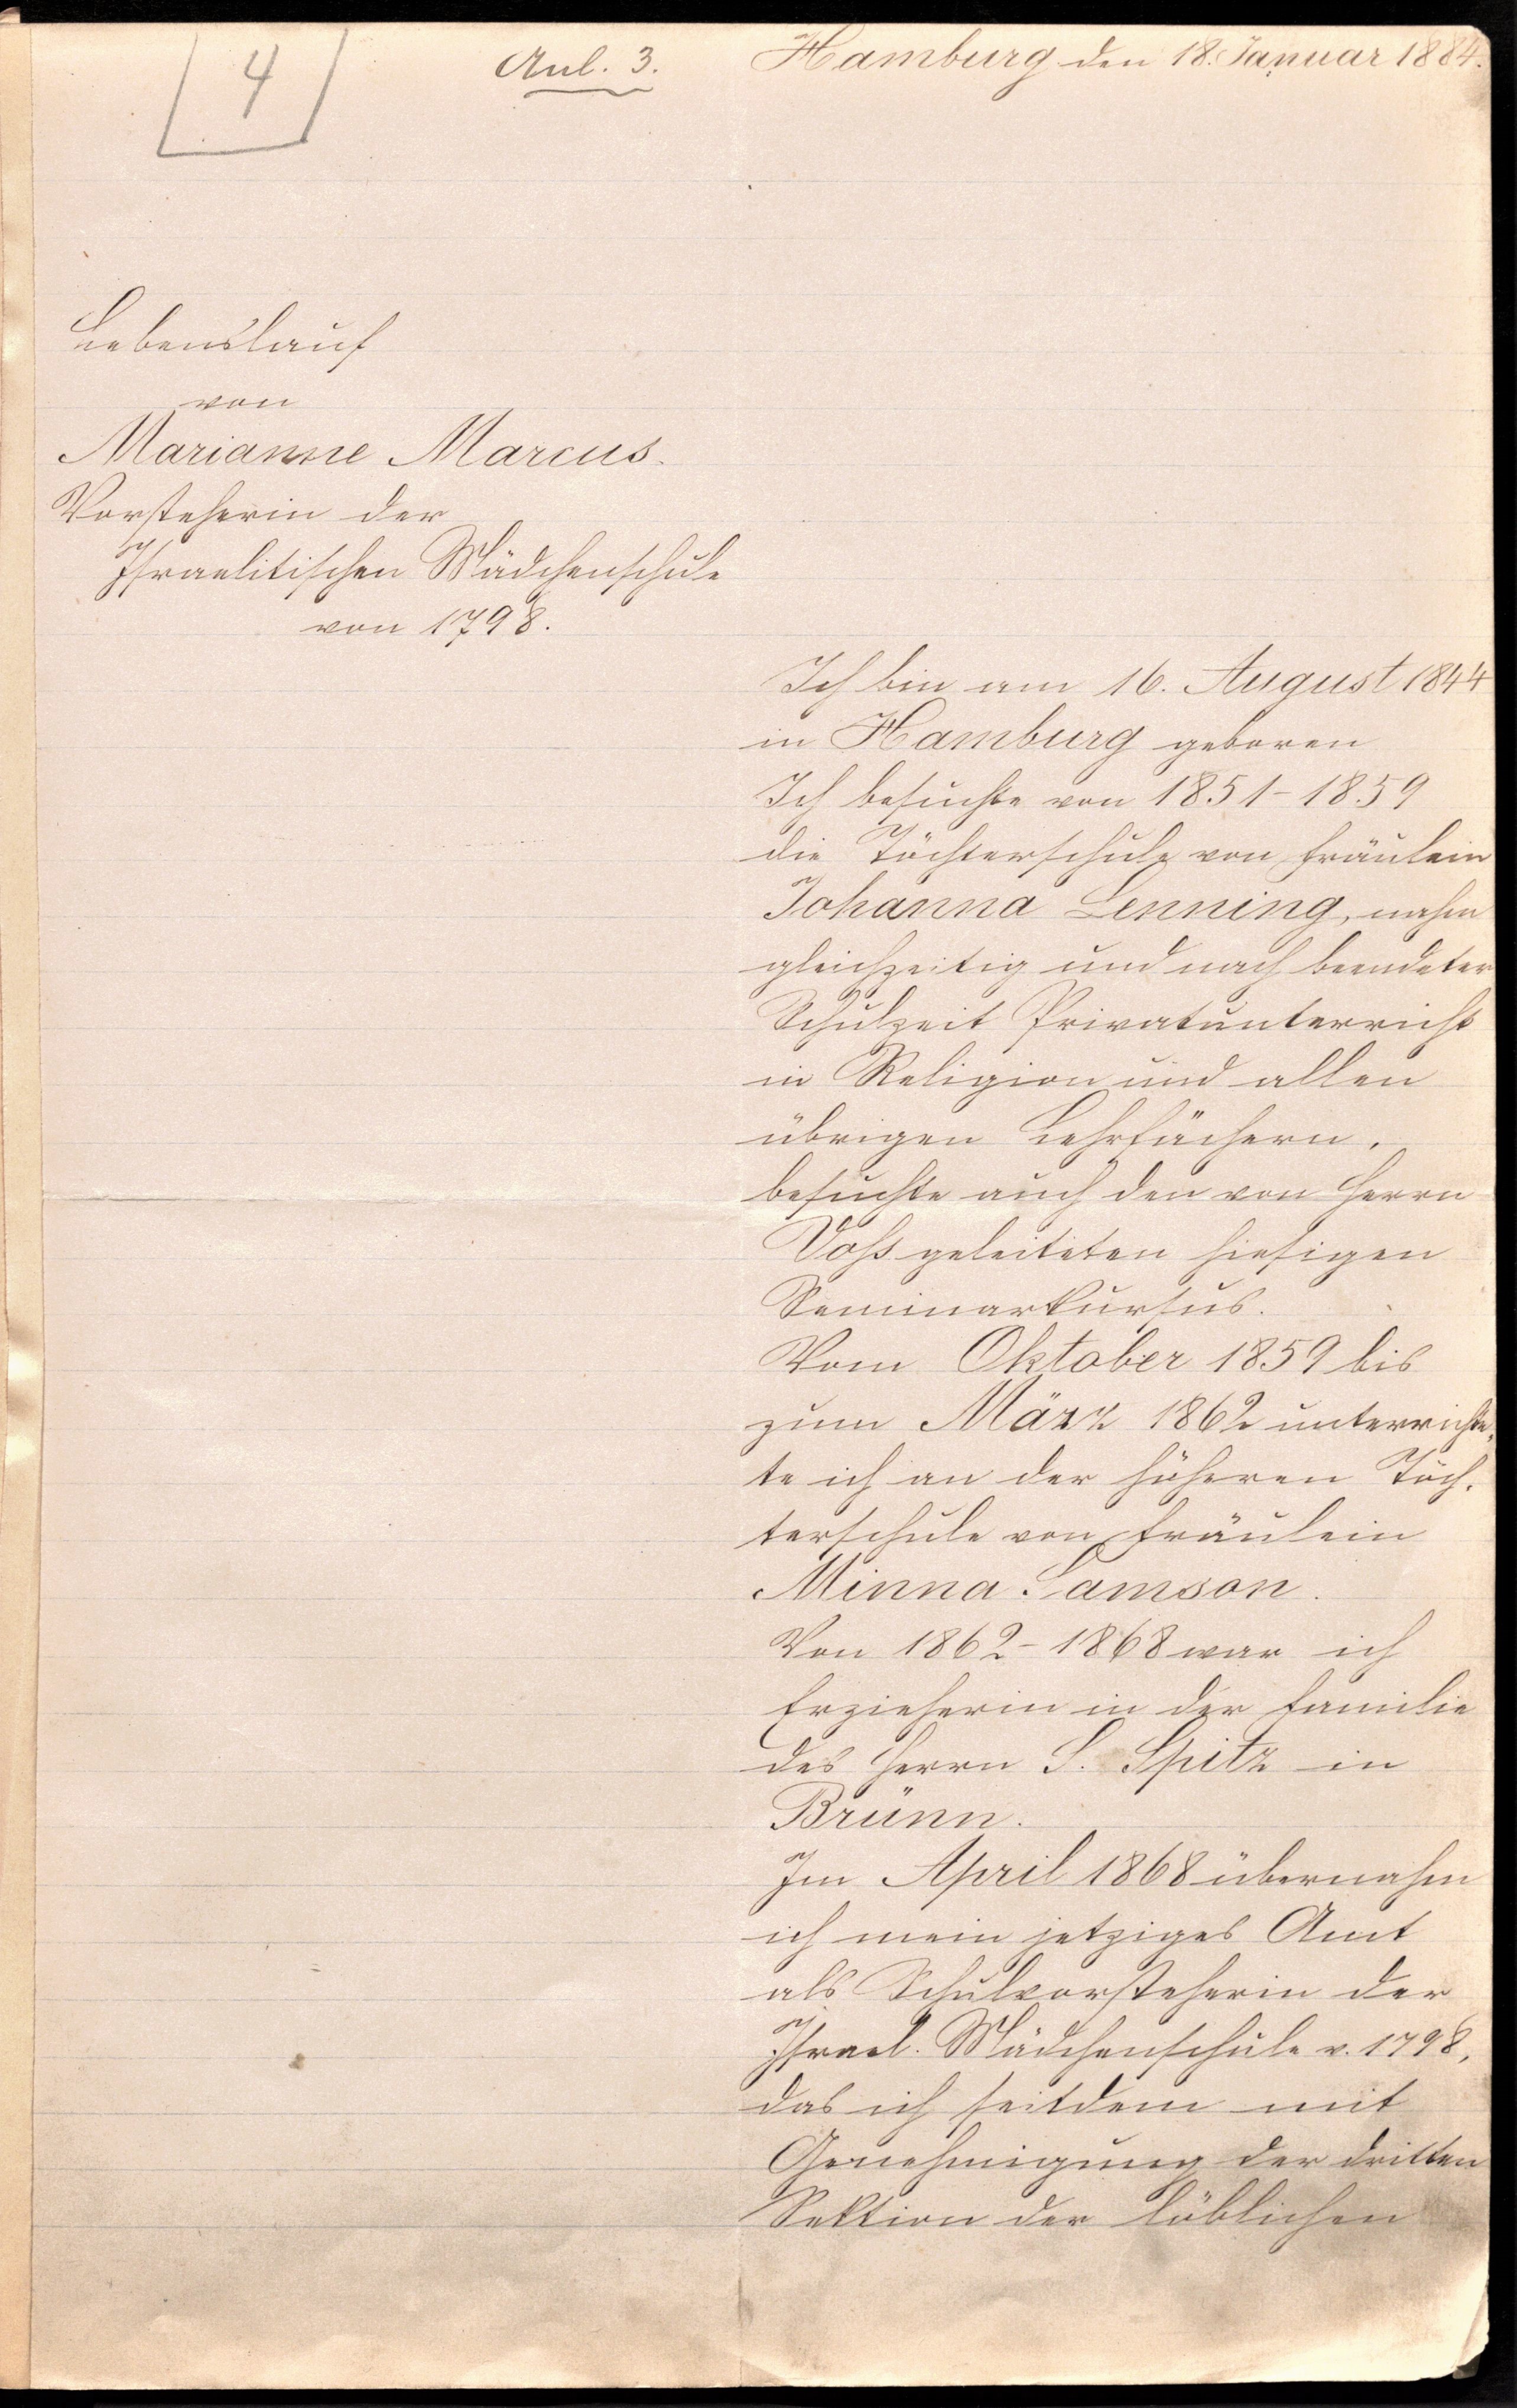 4
Anl. 3.
Hamburg den 18. Januar 1884.
Lebenslauf
von
Marianne Marcus.
Vorsteherin der
Israelitischen Mädchenschule
von 1798.
Ich bin am 16. August 1844
in Hamburg geboren
Ich besuchte von 1851-1859
die Töchterschule von Fräulein
Johanna Lenning, nahm
gleichzeitig und nach beendeter
Schulzeit Privatunterricht
in Religion und allen
übrigen Lehrfächern,
besuchte auch den von Herrn
Voß geleiteten hiesigen
Seminarkursus.
Vom Oktober 1859 bis
zum März 1862 unterrichte-
te ich an der höheren Töch-
terschule von Fräulein
Minna Samson.
Von 1862-1868 war ich
Erzieherin in der Familie
des Herrn S. Spitz in
Brünn.
Im April 1868 übernahm
ich mein jetziges Amt
als Schulvorsteherin der
Israel. Mädchenschule v. 1798,
das ich seitdem mit
Genehmigung der dritten
Sektion der löblichen